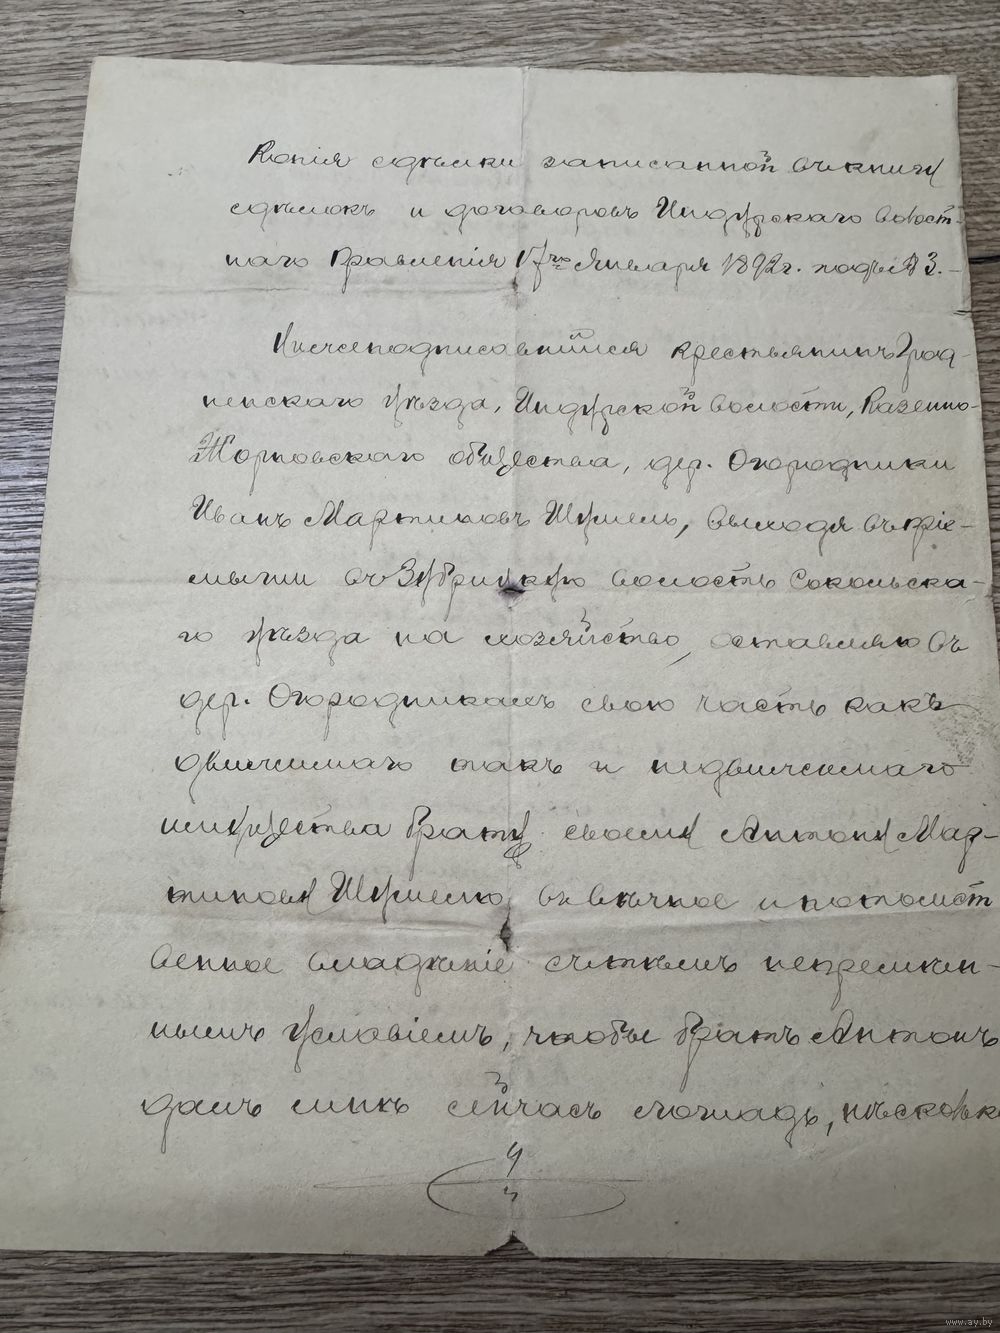 Копія сдѣлки записанной въ книгу
сдѣлокъ и договоровъ Индурскаго Волост-
наго Правленія 17го Января 1892 г. подъ № 3.-
Нижеподписавшійся крестьянинъ Грод-
ненскаго уѣзда, Индурской волости, Казенно-
Жорновскаго общества, дер. Огородники
Иванъ Мартиновъ Шумель, выходя въ пріе-
мыши въ Зубрицкую волость Сокольска-
го уѣзда на хозяйство, оставляю въ
дер. Огородникахъ свою часть какъ
движимаго такъ и недвижимаго
имущества брату своему Антону Мар-
тинову Шумелю въ вѣчное и потомст
венное владѣніе съ тѣмъ непремѣн-
нымъ условіемъ, чтобы братъ Антонъ
далъ мнѣ сейчасъ лошадь, нѣсколько
www.ay.by